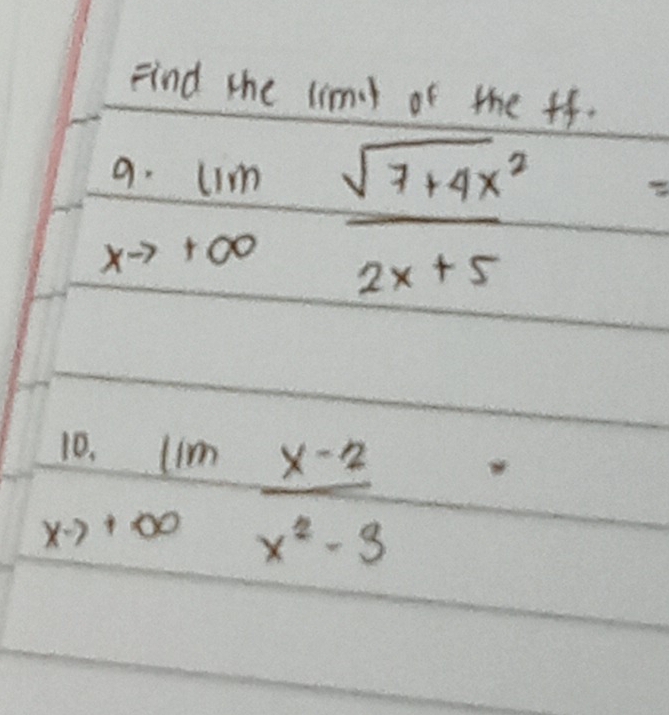 Find the limit of the ff.
9. lim √7+4x² =
x→ +∞ 2x + 5
10. lim x-2
x→ +∞ x² - 3